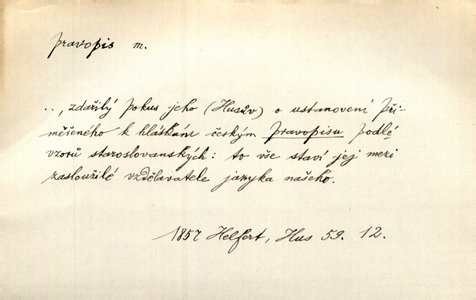 pravopis m.
.., zdařilý pokus jeho (Husův) o ustanovení při-
měřeného k hláskám českým pravopisu podlé
vzorů staroslovanských: to vše staví jej mezi
zasloužilé vzdělavatele jazyka našeho.
1857 Helfert, Hus 59. 12.